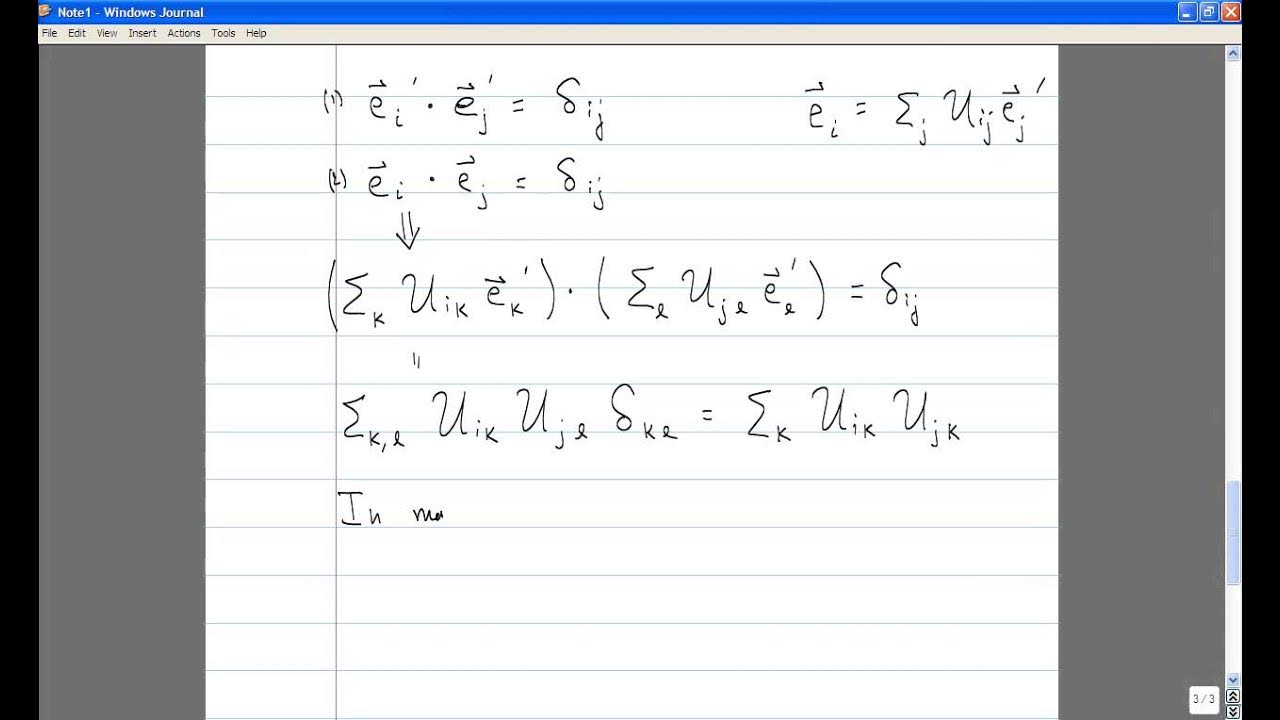 Note1 - Windows Journal
File Edit View Insert Actions Tools Help
(1) e⃗ᵢ' · e⃗ⱼ' = δᵢⱼ    e⃗ᵢ = Σⱼ Uᵢⱼ e⃗ⱼ'
(2) e⃗ᵢ · e⃗ⱼ = δᵢⱼ
⇓
(Σₖ Uᵢₖ e⃗ₖ') · (Σₗ Uⱼₗ e⃗ₗ') = δᵢⱼ
||
Σₖ,ₗ Uᵢₖ Uⱼₗ δₖₗ = Σₖ Uᵢₖ Uⱼₖ
In ma
3 / 3